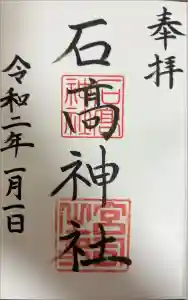 奉拝
石高神社
令和二年一月一日